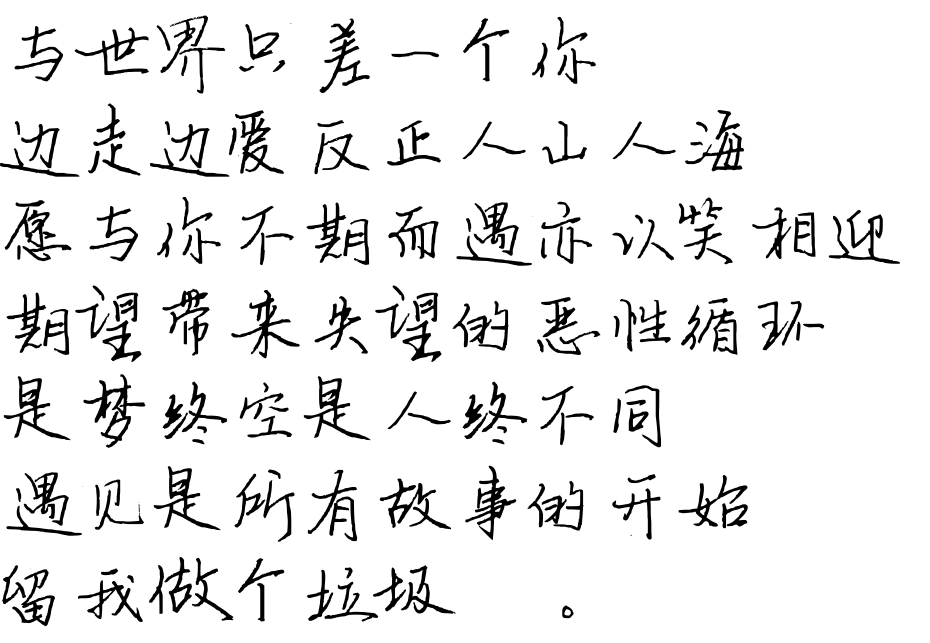 与世界只差一个你
边走边爱反正人山人海
愿与你不期而遇亦以笑相迎
期望带来失望的恶性循环
是梦终空是人终不同
遇见是所有故事的开始
留我做个垃圾 。